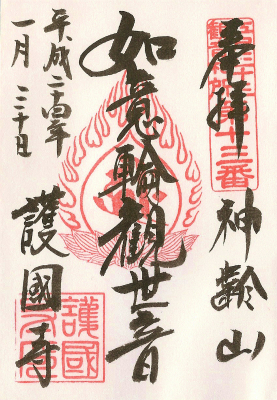 奉拝
第十三番
神齡山
如意輪觀世音
平成二十四年
一月三十日
護國寺
護國